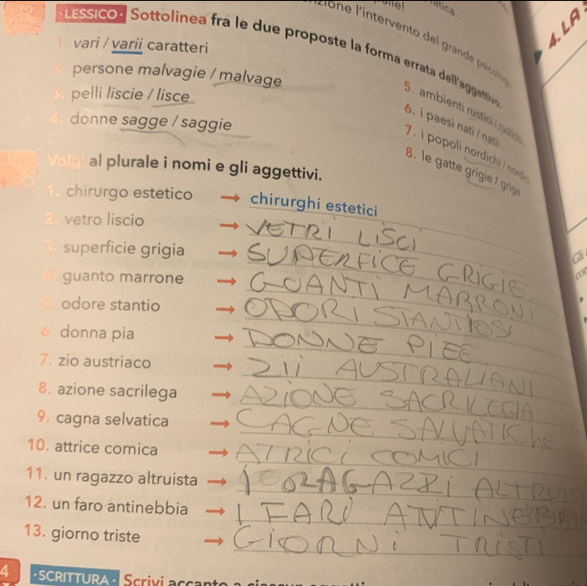 LESSICO Sottolinea fra le due proposte la forma errata dell'aggettivo.
l'intervento del grande psicologo
4. LA
1. vari / varii caratteri
2. persone malvagie / malvage
3. pelli liscie / lisce
4. donne sagge / saggie
5. ambienti rustici /
6. i paesi nati / natii
7. i popoli nordichi /
8. le gatte grigie / grige
Volgi al plurale i nomi e gli aggettivi.
1. chirurgo estetico → chirurghi estetici
2. vetro liscio → VETRI LISCI
3. superficie grigia → SUPERFICE GRIGIE
4. guanto marrone → GUANTI MARRONI
5. odore stantio → ODORI STANTIOSI
6. donna pia → DONNE PIEE
7. zio austriaco → ZII AUSTRALIANI
8. azione sacrilega → AZIONE SACRILEGIA
9. cagna selvatica → CAGNE SALVATICHE
10. attrice comica → ATRICI COMICI
11. un ragazzo altruista → RAGAZZI
12. un faro antinebbia → I FARI
13. giorno triste → GIORNI TRISTI
4 SCRITTURA Scrivi accanto a